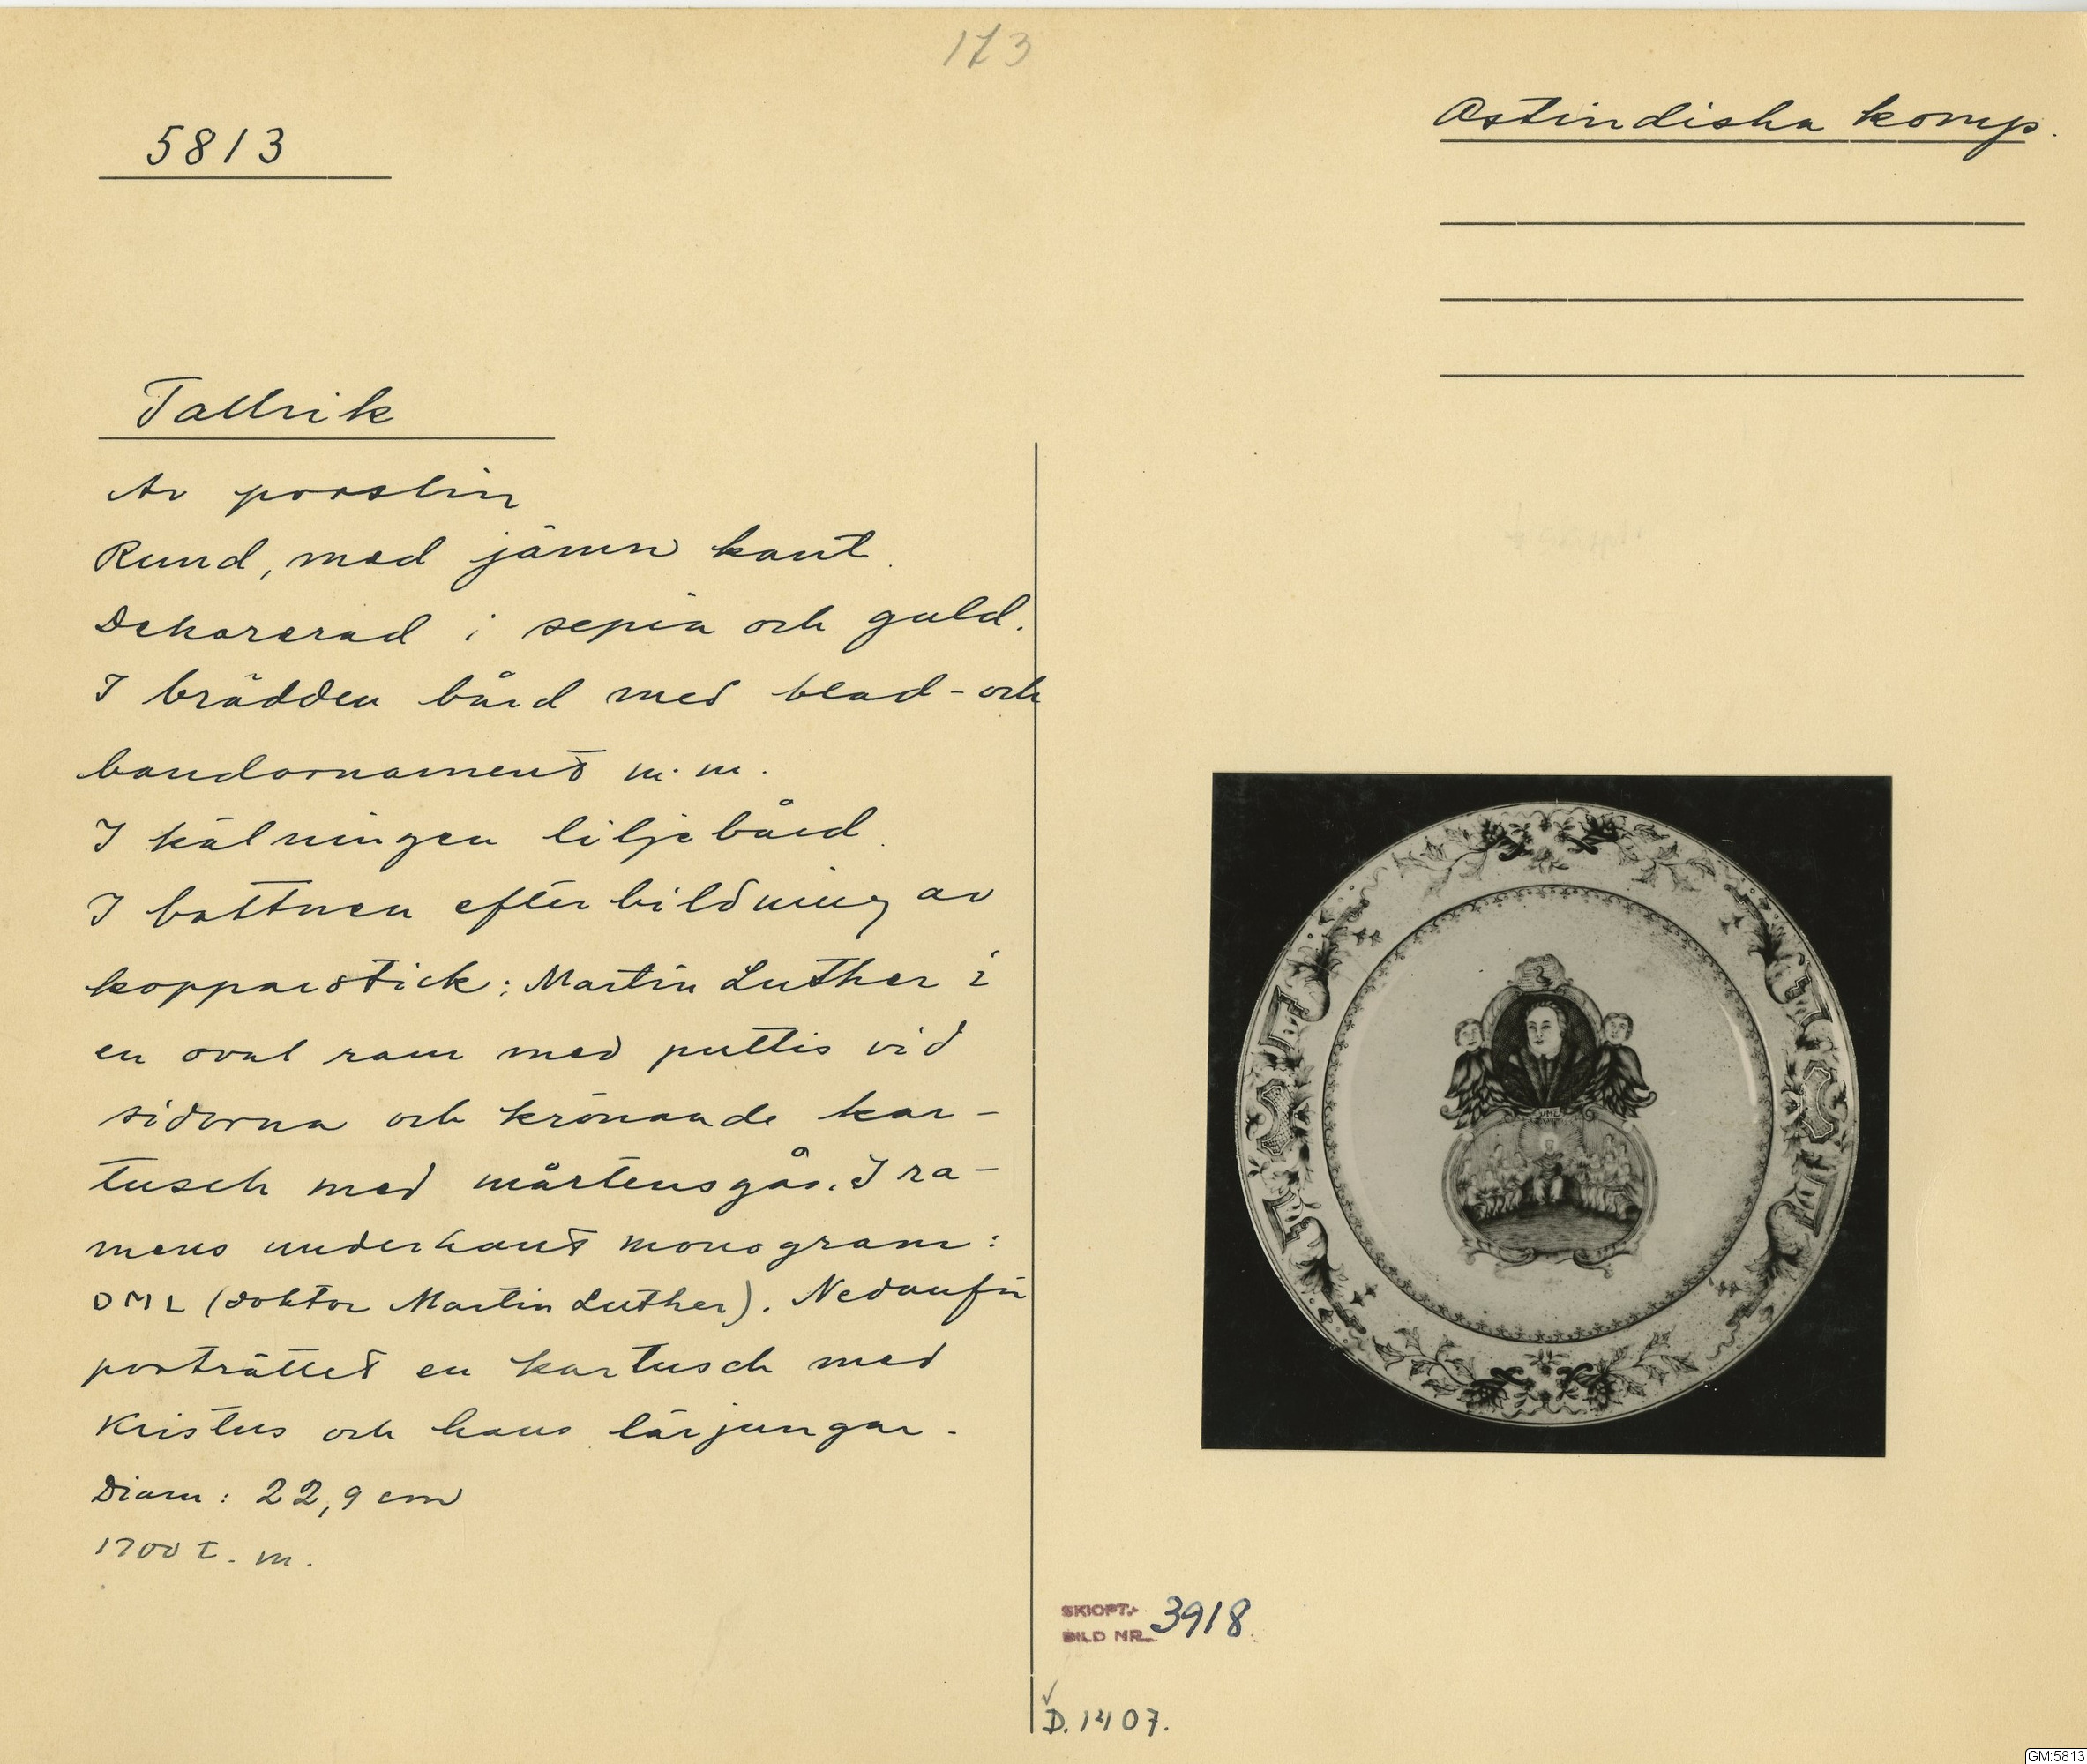 173
5813
Ostindiska komp.
Tallrik
Av porslin
Rund, med jämn kant.
Dekorerad i sepia och guld.
I brädden bård med blad- och
bandornament m.m.
I kälningen liljebård.
I bottnen efterbildning av
kopparstick: Martin Luther i
en oval ram med puttis vid
sidorna och krönande kar-
tusch med mårtensgås. I ra-
mens underkant monogram:
DML (doktor Martin Luther). Nedanför
porträttet en kartusch med
Kristus och hans lärjungar.
Diam: 22,9 cm
1700 t. m.
DML
SKIOPT.
BILD NR. 3918.
D. 1407.
GM:5813